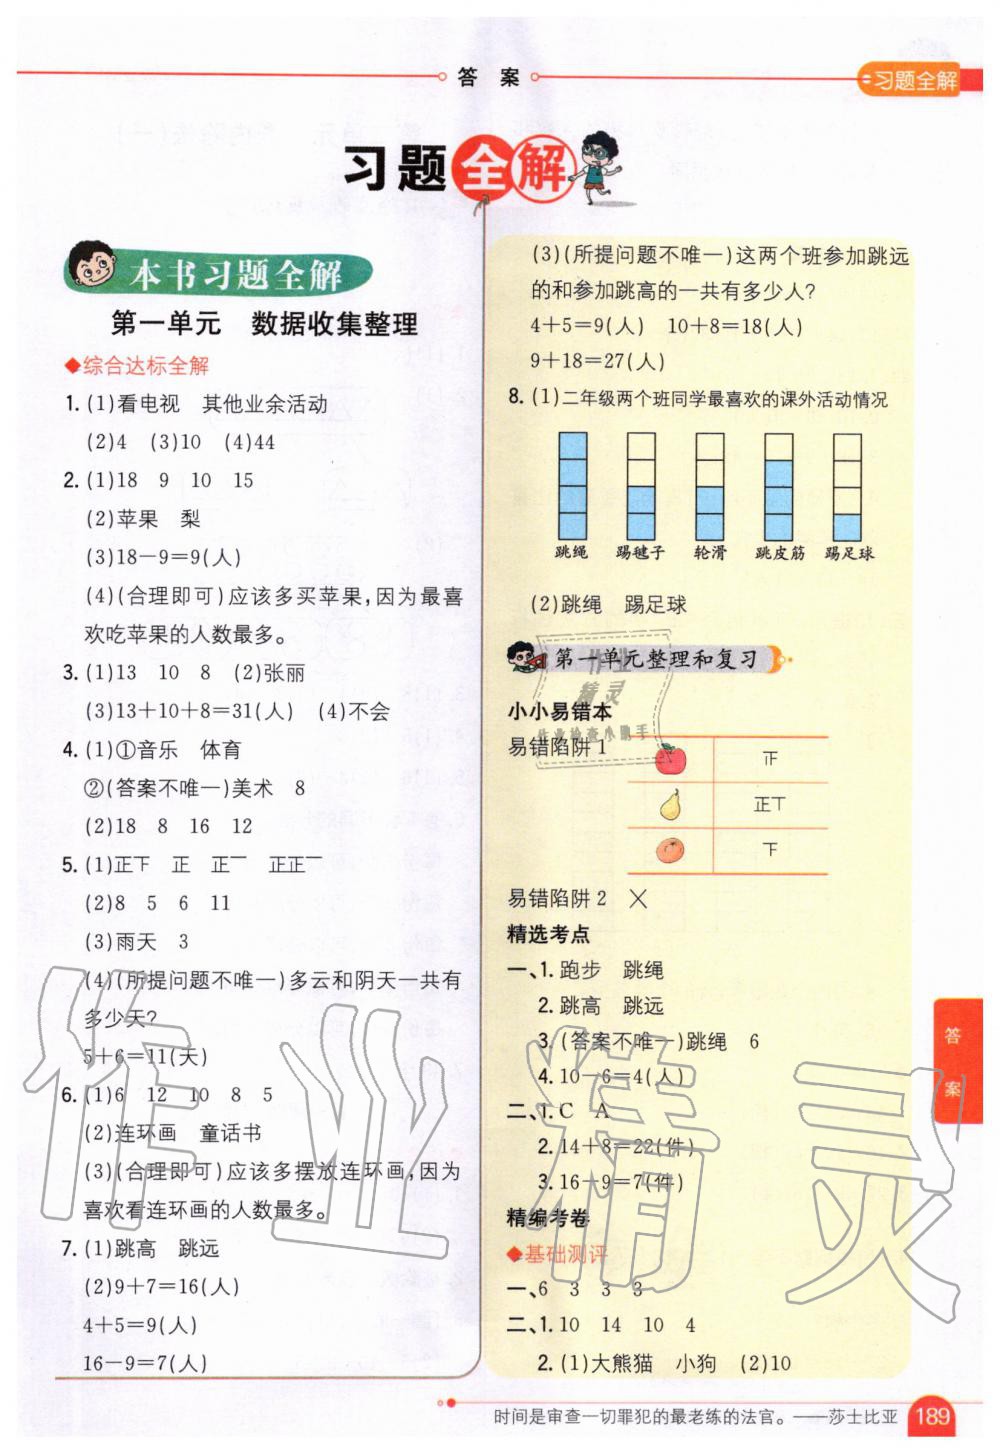 答 案
习题全解
习题全解
本书习题全解
第一单元 数据收集整理
◆综合达标全解
1. (1)看电视 其他业余活动
(2)4 (3)10 (4)44
2. (1)18 9 10 15
(2)苹果 梨
(3)18-9=9(人)
(4)(合理即可)应该多买苹果,因为最喜
欢吃苹果的人数最多。
3. (1)13 10 8 (2)张丽
(3)13+10+8=31(人) (4)不会
4. (1)①音乐 体育
②(答案不唯一)美术 8
(2)18 8 16 12
5. (1)正下 正 正一 正正一
(2)8 5 6 11
(3)雨天 3
(4)(所提问题不唯一)多云和阴天一共有
多少天?
5+6=11(天)
6. (1)6 12 10 8 5
(2)连环画 童话书
(3)(合理即可)应该多摆放连环画,因为
喜欢看连环画的人数最多。
7. (1)跳高 跳远
(2)9+7=16(人)
4+5=9(人)
16-9=7(人)
(3)(所提问题不唯一)这两个班参加跳远
的和参加跳高的一共有多少人?
4+5=9(人) 10+8=18(人)
9+18=27(人)
8. (1)二年级两个班同学最喜欢的课外活动情况
跳绳 踢毽子 轮滑 跳皮筋 踢足球
(2)跳绳 踢足球
第一单元整理和复习
小小易错本
易错陷阱 1
正
正丅
下
易错陷阱 2 ×
精选考点
一、1. 跑步 跳绳
2. 跳高 跳远
3. (答案不唯一)跳绳 6
4. 10-6=4(人)
二、1. C A
2. 14+8=22(件)
3. 16-9=7(件)
精编考卷
◆基础测评
一、6 3 3 3
二、1. 10 14 10 4
2. (1)大熊猫 小狗 (2)10
答
案
时间是审查一切罪犯的最老练的法官。——莎士比亚
189
作业精灵
作业
精灵
作业检查小助手